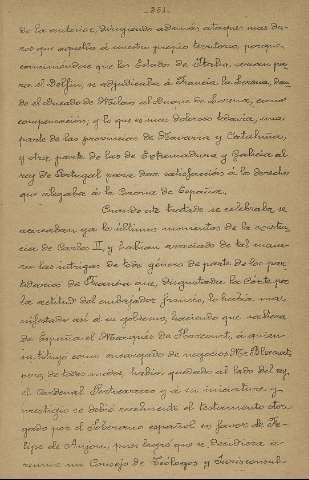 - 251 -
de la anterior, dirigiendo además ataques mas du-
ros que aquella á nuestro propio territorio, porque
conviniéndose que los Estados de Italia, serian pa-
ra el Delfin, se adjudicaba á Francia la Lorena, dan-
do el Ducado de Milan al Duque de Lorena, como
compensación, y lo que es mas doloroso todavia, una
parte de las provincias de Navarra y Cataluña,
y otra parte de las de Extremadura y Galicia al
rey de Portugal para dar satisfacción á los derechos
que alegaba á la Corona de España.
Cuando este tratado se celebraba se
acercaban ya los últimos momentos de la existen-
cia de Carlos II, y habian arreciado de tal mane-
ra las intrigas de todo género de parte de los par-
tidarios de Francia que, disgustada la Corte por
la actitud del embajador francés, lo habia ma-
nifestado asi á su gobierno, haciendo que saliera
de España el Marques de Harcourt, á quien
sustituyó como encargado de negocios Mr. Blecourt,
pero, de todos modos, habia quedado al lado del rey
el Cardenal Portocarrero y á su iniciativa y
prestigio se debió realmente el testamento otor-
gado por el Soberano español en favor de Fe-
lipe de Anjou, pues logró que se decidiera á
reunir un Consejo de Teólogos y Jurisconsul-